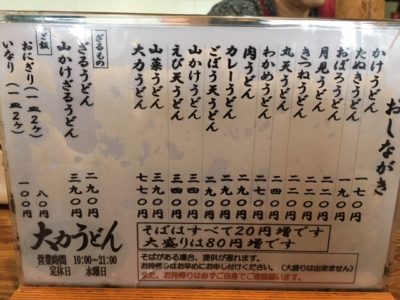 おしながき
かけうどん
たぬきうどん 一七〇円
おぼろうどん 一九〇円
月見うどん 二二〇円
きつねうどん 二二〇円
丸天うどん 二二〇円
わかめうどん
肉うどん 二九〇円
カレーうどん 二九〇円
ごぼう天うどん 二九〇円
山かけうどん 三四〇円
えび天うどん 三四〇円
山菜うどん
大力うどん 七七〇円
ざるもの
ざるうどん 二九〇円
山かけざるうどん 三九〇円
ご飯
おにぎり(一皿2ケ) 八〇円
いなり(一皿2ケ) 一〇〇円
そばはすべて20円増です
大盛りは80円増です
そばがある場合、提供が遅れます。
お持帰りはお早めにお申し付けください。(大盛りは出来ません)
また、お持帰りは必ずご自身でご確認願います。
大力うどん
営業時間 10:00~21:00
定休日 水曜日